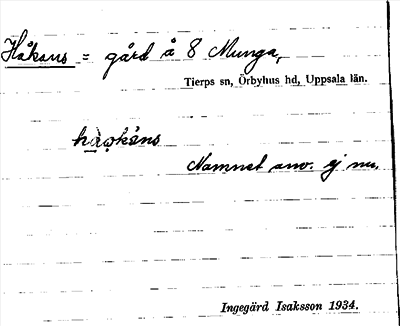 Håkans = gård å 8 Munga,
Tierps sn, Örbyhus hd, Uppsala län.
håkåns
Namnet anv. ej nu.
Ingegärd Isaksson 1934.